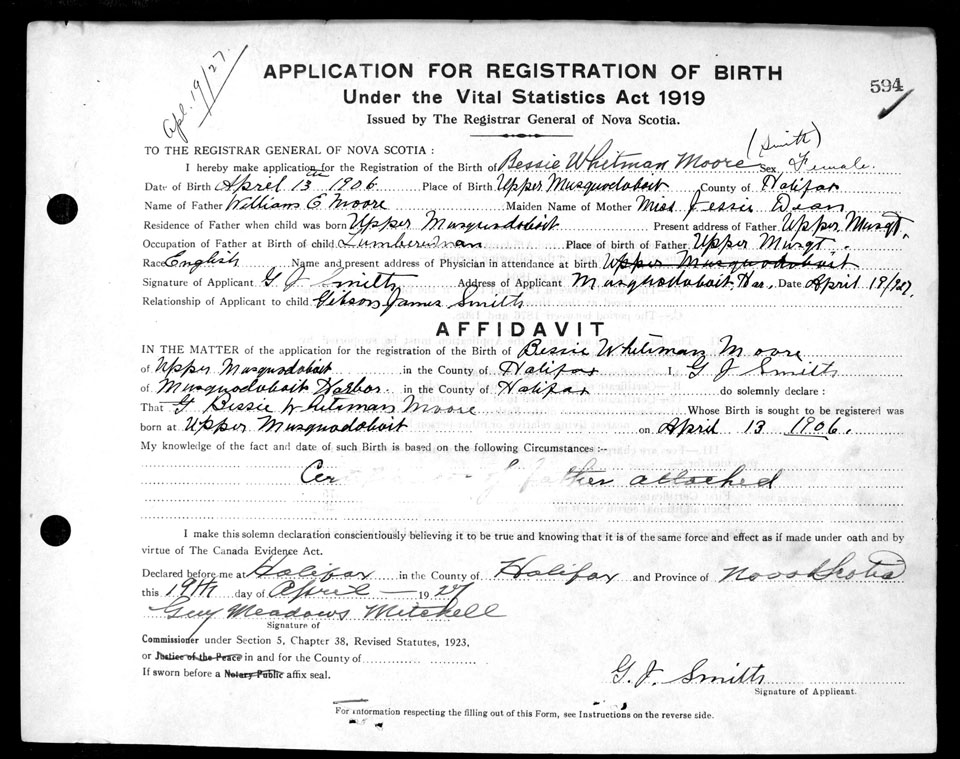 Apl. 19/27.
APPLICATION FOR REGISTRATION OF BIRTH
594
Under the Vital Statistics Act 1919
Issued by The Registrar General of Nova Scotia.
TO THE REGISTRAR GENERAL OF NOVA SCOTIA :
(Smith)
I hereby make application for the Registration of the Birth of Bessie Whitman Moore Sex Female.
Date of Birth April 13th 1906 Place of Birth Upper Musquodoboit County of Halifax
Name of Father William C Moore Maiden Name of Mother Miss Jessie Dean
Residence of Father when child was born Upper Musquodoboit Present address of Father Upper Musqt.
Occupation of Father at Birth of child Lumberman Place of birth of Father Upper Musqt.
Race English Name and present address of Physician in attendance at birth Upper Musquodoboit
Signature of Applicant G J Smith Address of Applicant Musquodoboit Har. Date April 18/27
Relationship of Applicant to child Gibson James Smith
AFFIDAVIT
IN THE MATTER of the application for the registration of the Birth of Bessie Whitman Moore
of Upper Musquodoboit in the County of Halifax I, G J Smith
of Musquodoboit Harbor in the County of Halifax do solemnly declare :
That G Bessie Whitman Moore Whose Birth is sought to be registered was
born at Upper Musquodoboit on April 13 1906.
My knowledge of the fact and date of such Birth is based on the following Circumstances :-
father attached
I make this solemn declaration conscientiously believing it to be true and knowing that it is of the same force and effect as if made under oath and by
virtue of The Canada Evidence Act.
Declared before me at Halifax in the County of Halifax and Province of Nova Scotia
this 19th day of April 1927
Guy Meadows Mitchell
Signature of
Commissioner under Section 5, Chapter 38, Revised Statutes, 1923,
or Justice of the Peace in and for the County of
If sworn before a Notary Public affix seal.
G. J. Smith
Signature of Applicant.
For information respecting the filling out of this Form, see Instructions on the reverse side.